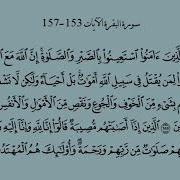 سورة البقرة الآيات 153-157
لَّذِينَ ءَامَنُوا۟ ٱسْتَعِينُوا۟ بِٱلصَّبْرِ وَٱلصَّلَوٰةِ إِنَّ ٱللَّهَ مَعَ
لِمَن يُقْتَلُ فِى سَبِيلِ ٱللَّهِ أَمْوَٰتٌۢ بَلْ أَحْيَآءٌ وَلَٰكِن لَّا تَشْ
بِشَىْءٍ مِّنَ ٱلْخَوْفِ وَٱلْجُوعِ وَنَقْصٍ مِّنَ ٱلْأَمْوَٰلِ وَٱلْأَنفُسِ
ٱلَّذِينَ إِذَآ أَصَٰبَتْهُم مُّصِيبَةٌ قَالُوٓا۟ إِنَّا لِلَّهِ وَإِنَّآ إِلَيْهِ
هِمْ صَلَوَٰتٌ مِّن رَّبِّهِمْ وَرَحْمَةٌ وَأُو۟لَٰٓئِكَ هُمُ ٱلْمُهْتَد